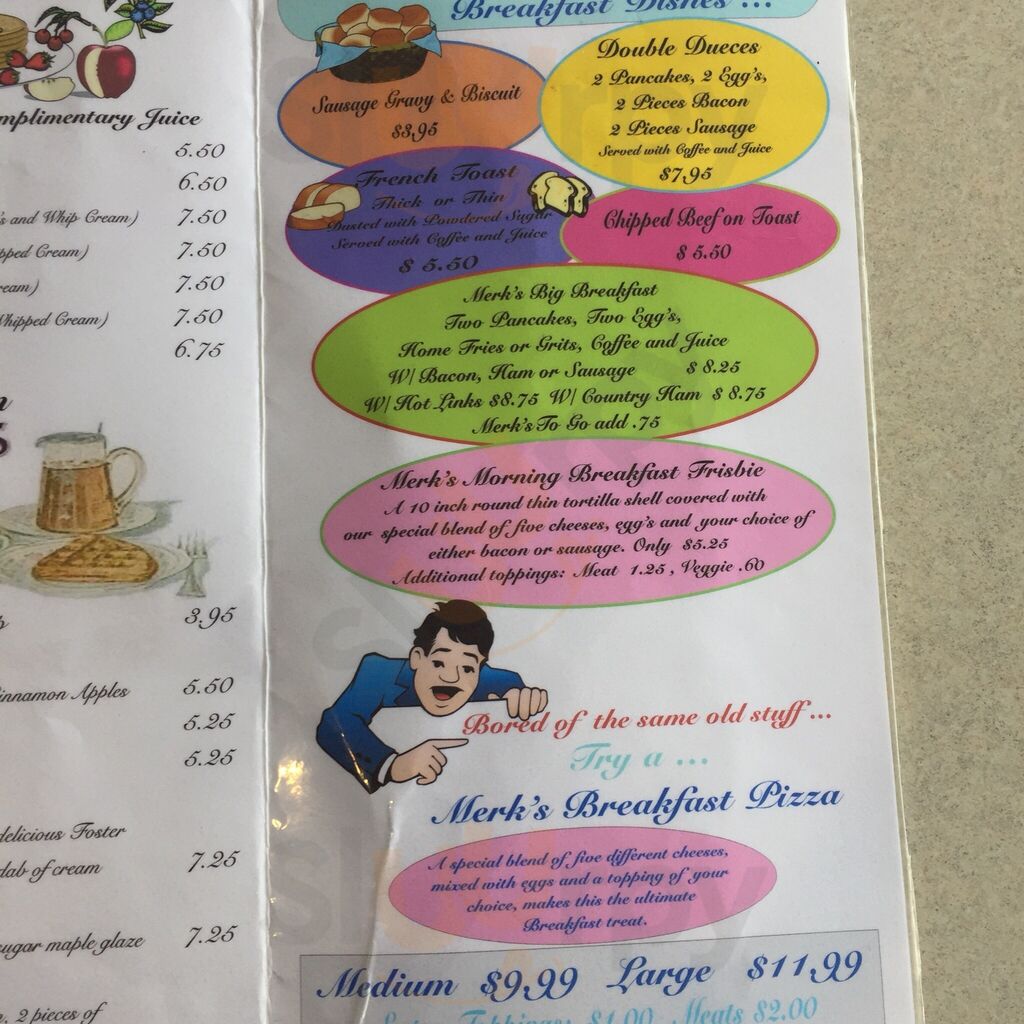 Complimentary Juice
5.50
6.50
's and Whip Cream) 7.50
pped Cream) 7.50
ream) 7.50
Whipped Cream) 7.50
6.75
3.95
innamon Apples 5.50
5.25
5.25
delicious Foster
dab of cream 7.25
sugar maple glaze 7.25
2 pieces of
Breakfast Dishes ...
Sausage Gravy & Biscuit
$3.95
Double Dueces
2 Pancakes, 2 Egg's,
2 Pieces Bacon
2 Pieces Sausage
Served with Coffee and Juice
$7.95
French Toast
Thick or Thin
Dusted with Powdered Sugar
Served with Coffee and Juice
$ 5.50
Chipped Beef on Toast
$ 5.50
Merk's Big Breakfast
Two Pancakes, Two Egg's,
Home Fries or Grits, Coffee and Juice
W/ Bacon, Ham or Sausage $ 8.25
W/ Hot Links $8.75 W/ Country Ham $ 8.75
Merk's To Go add .75
Merk's Morning Breakfast Frisbie
A 10 inch round thin tortilla shell covered with
our special blend of five cheeses, egg's and your choice of
either bacon or sausage. Only $5.25
Additional toppings: Meat 1.25 , Veggie .60
Bored of the same old stuff...
Try a ...
Merk's Breakfast Pizza
A special blend of five different cheeses,
mixed with eggs and a topping of your
choice, makes this the ultimate
Breakfast treat.
Medium $9.99 Large $11.99
Extra Toppings: $1.00 Meats $2.00